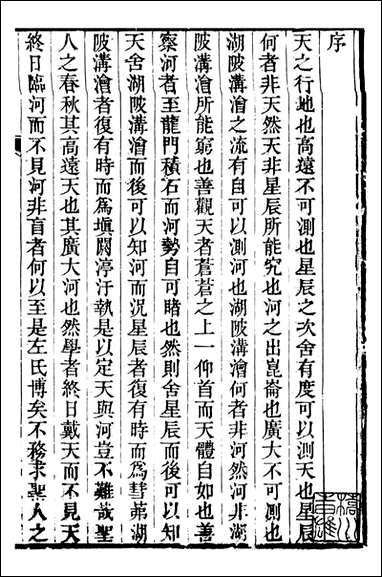 序
天之行地也高遠不可測也星辰之次舍有度可以測天也星辰
何者非天然天非星辰所能究也河之出崑崙也廣大不可測也
湖陂溝澮之流有自可以測河也湖陂溝澮何者非河然河非湖
陂溝澮所能窮也善觀天者蒼蒼之上一仰首而天體自如也善
察河者至龍門積石而河勢自可睹也然則舍星辰而後可以知
天舍湖陂溝澮而後可以知河而況星辰者復有時而為彗茀湖
陂溝澮者復有時而為塡閼渟汙執是以定天與河豈不難哉聖
人之春秋其高遠天也其廣大河也然學者終日戴天而不見天
終日臨河而不見河非首者何以至是左氏博矣不務求聖人之